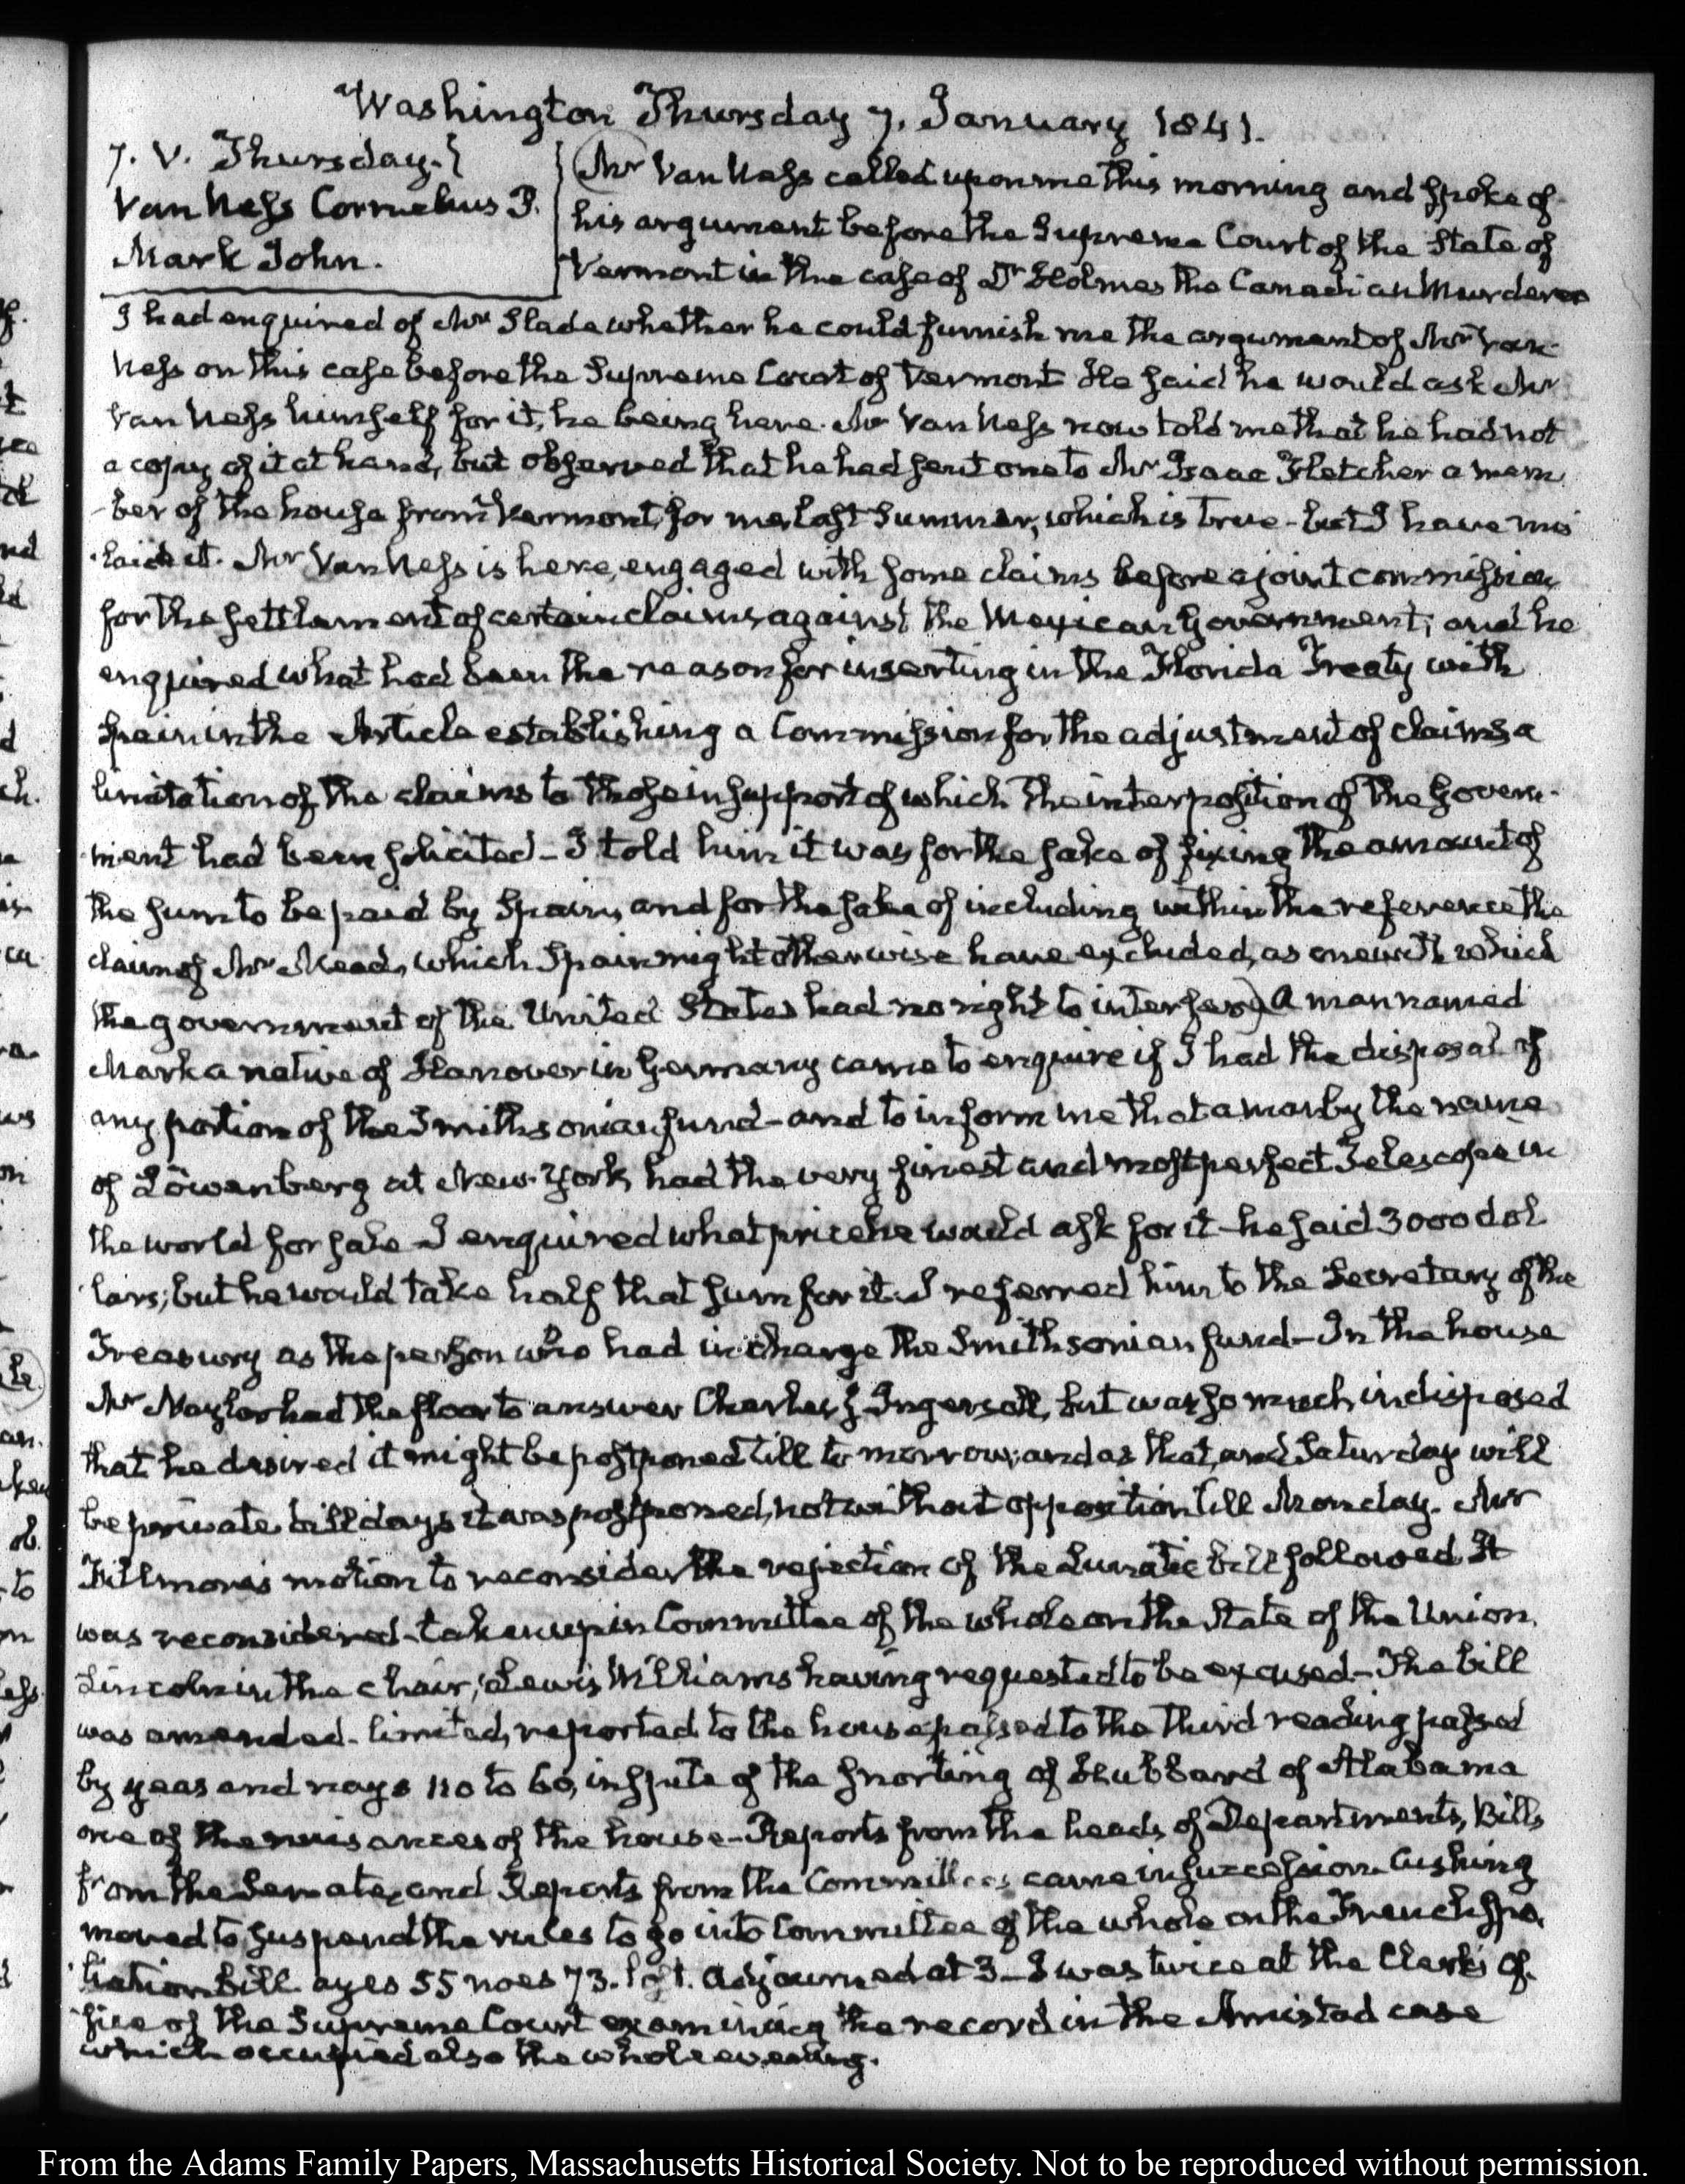 Washington Thursday 7. January 1841.
7. V. Thursday.
Van Ness Cornelius P.
Mark John.
Mr Van Ness called upon me this morning and spoke of
his argument before the Supreme Court of the State of
Vermont in the case of Dr Holmes the Canadian Murderer
I had enquired of Mr Slade whether he could furnish me the argument of Mr Van
Ness on this case before the Supreme Court of Vermont He said he would ask Mr
Van Ness himself for it, he being here. Mr Van Ness now told me that he had not
a copy of it at hand, but observed that he had sent one to Mr Isaac Fletcher a mem
-ber of the house from Vermont, for me last Summer, which is true - but I have mis
-laid it. Mr Van Ness is here, engaged with some claims before a joint commission
for the settlement of certain claims against the Mexican Government; and he
enquired what had been the reason for inserting in the Florida Treaty with
Spain in the Article establishing a Commission for the adjustment of claims a
limitation of the claims to those in support of which the interposition of the Govern-
ment had been solicited - I told him it was for the sake of fixing the amount of
the sum to be paid by Spain, and for the sake of including within the reference the
claim of Mr Mead, which Spain might otherwise have excluded, as one with which
the government of the United States had no right to interfere) A man named
Mark a native of Hanover in Germany came to enquire if I had the disposal of
any portion of the Smithsonian fund - and to inform me that a man by the name
of Löwenberg at New-York, had the very finest and most perfect Telescope in
the world for sale - I enquired what price he would ask for it - he said 3000 dol
lars; but he would take half that sum for it. I referred him to the Secretary of the
Treasury as the person who had in charge the Smithsonian fund - In the house
Mr Naylor had the floor to answer Charles J. Ingersoll, but was so much indisposed
that he desired it might be postponed till to morrow; and as that, and Saturday will
be private bill days it was postponed, not without opposition till Monday. Mr
Fillmore's motion to reconsider the rejection of the Lunatic bill followed It
was reconsidered - taken up in Committee of the whole on the State of the Union.
Lincoln in the chair; Lewis Williams having requested to be excused - The bill
was amended - limited, reported to the house passed to the third reading passed
by yeas and nays 110 to 60, in spite of the snorting of Hubbard of Alabama
one of the nuisances of the house - Reports from the heads of Departments, Bills
from the Senate, and Reports from the Committees came in succession. Cushing
moved to suspend the rules to go into Committee of the whole on the French Spo.
liation Bill ayes 55 noes 73. lost. Adjourned at 3 - I was twice at the Clerk's of-
fice of the Supreme Court examining the record in the Amistad case
which occupied also the whole evening.
From the Adams Family Papers, Massachusetts Historical Society. Not to be reproduced without permission.